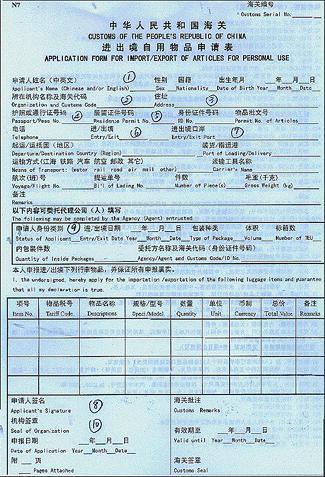 N7 海关编号
Customs Serial No.
中华人民共和国海关
CUSTOMS OF THE PEOPLE'S REPUBLIC OF CHINA
进出境自用物品申请表
APPLICATION FORM FOR IMPORT/EXPORT OF ARTICLES FOR PERSONAL USE
申请人姓名（中英文） ① 性别 国籍 出生年月 年 月 日
Applicant's Name (Chinese and/or English) Sex Nationality Date of Birth Year Month Date
所在机构名称及海关代码 ② 住址 ③
Organization and Customs Code Address
护照或通行证号码 ④ 居留证件号码 ⑤ 身份证件号码 物品批文号
Passport/Pass No. Residence Permit No. ID No. Permit No. of Articles
电话 进/出境 ⑥ 进出境口岸 ⑦
Telephone Entry/Exit Entry/Exit Port
起运/运抵国（地区） 装货/指运港
Departure/Destination Country (Region) Port of Loading/Delivery
运输方式（江海 铁路 汽车 航空 邮政 其它） 运输工具名称
Means of Transport: (water rail road air mail other) Carrier's Name
航次（班）号 提运单号 件数 毛重（千克）
Voyage/Flight No. Bill of Lading No. Number of Piece(s) Gross Weight (kg)
备注
Remarks
以下内容可委托代理公司（人）填写
The following may be completed by the Agency (Agent) entrusted
申请人身份类别 ⑨ 进/出境日期 年 月 日 包装种类 体积 标箱数
Status of Applicant Entry/Exit Date Year Month Date Type of Package Volume Number of TEU
内包装件数 受托方名称及海关代码（身份证件号码）
Quantity of Inside Packages Agency/Agent and Customs Code/ID No.
本人申报进/出境下列行李物品，并保证所有申报属实。
I, the undersigned, hereby apply for the importation/exportation of the following luggage items and guarantee
that all my declaration is true.
项目 物品税号 物品名称 规格/型号 数量 单位 币制 总价 备注
Item No. Tariff Code. Descriptions Spec./Model Quantity Unit Currency Total Value Remarks
申请人签名 ⑧ 海关批注
Applicant's Signature Customs Remarks
机构签章 ⑩
Seal of Organization 有效期至 年 月 日
申报日期 年 月 日 Valid until Year Month Date
Date of Application Year Month Date
附 页 海关签章
Pages Attached Customs Seal